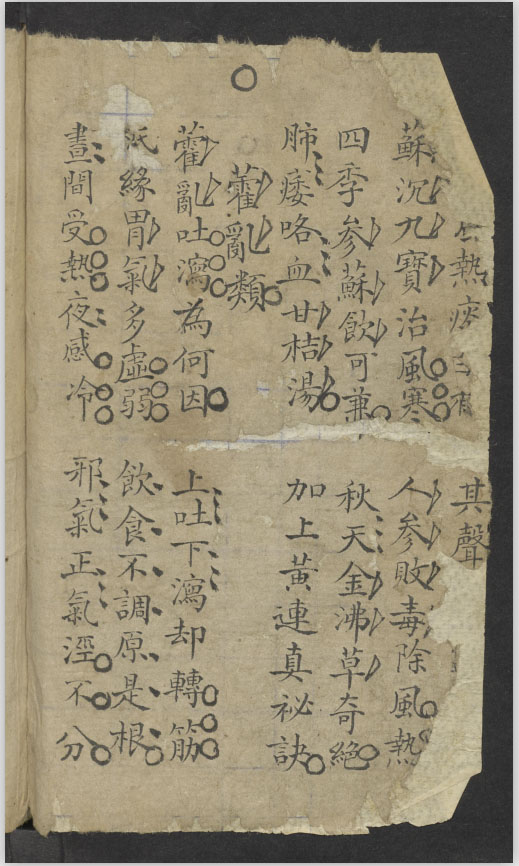 熱 有 其聲
蘇沉九寶治風寒 人參敗毒除風熱
四季參蘇飲可兼 秋天金沸草奇絕
肺痿咯血甘桔湯 加上黃連真祕訣
藿亂類
藿亂吐瀉為何因 上吐下瀉却轉筋
緣胃氣多虛弱 飲食不調原是根
晝間受熱夜感冷 邪氣正氣涇不分